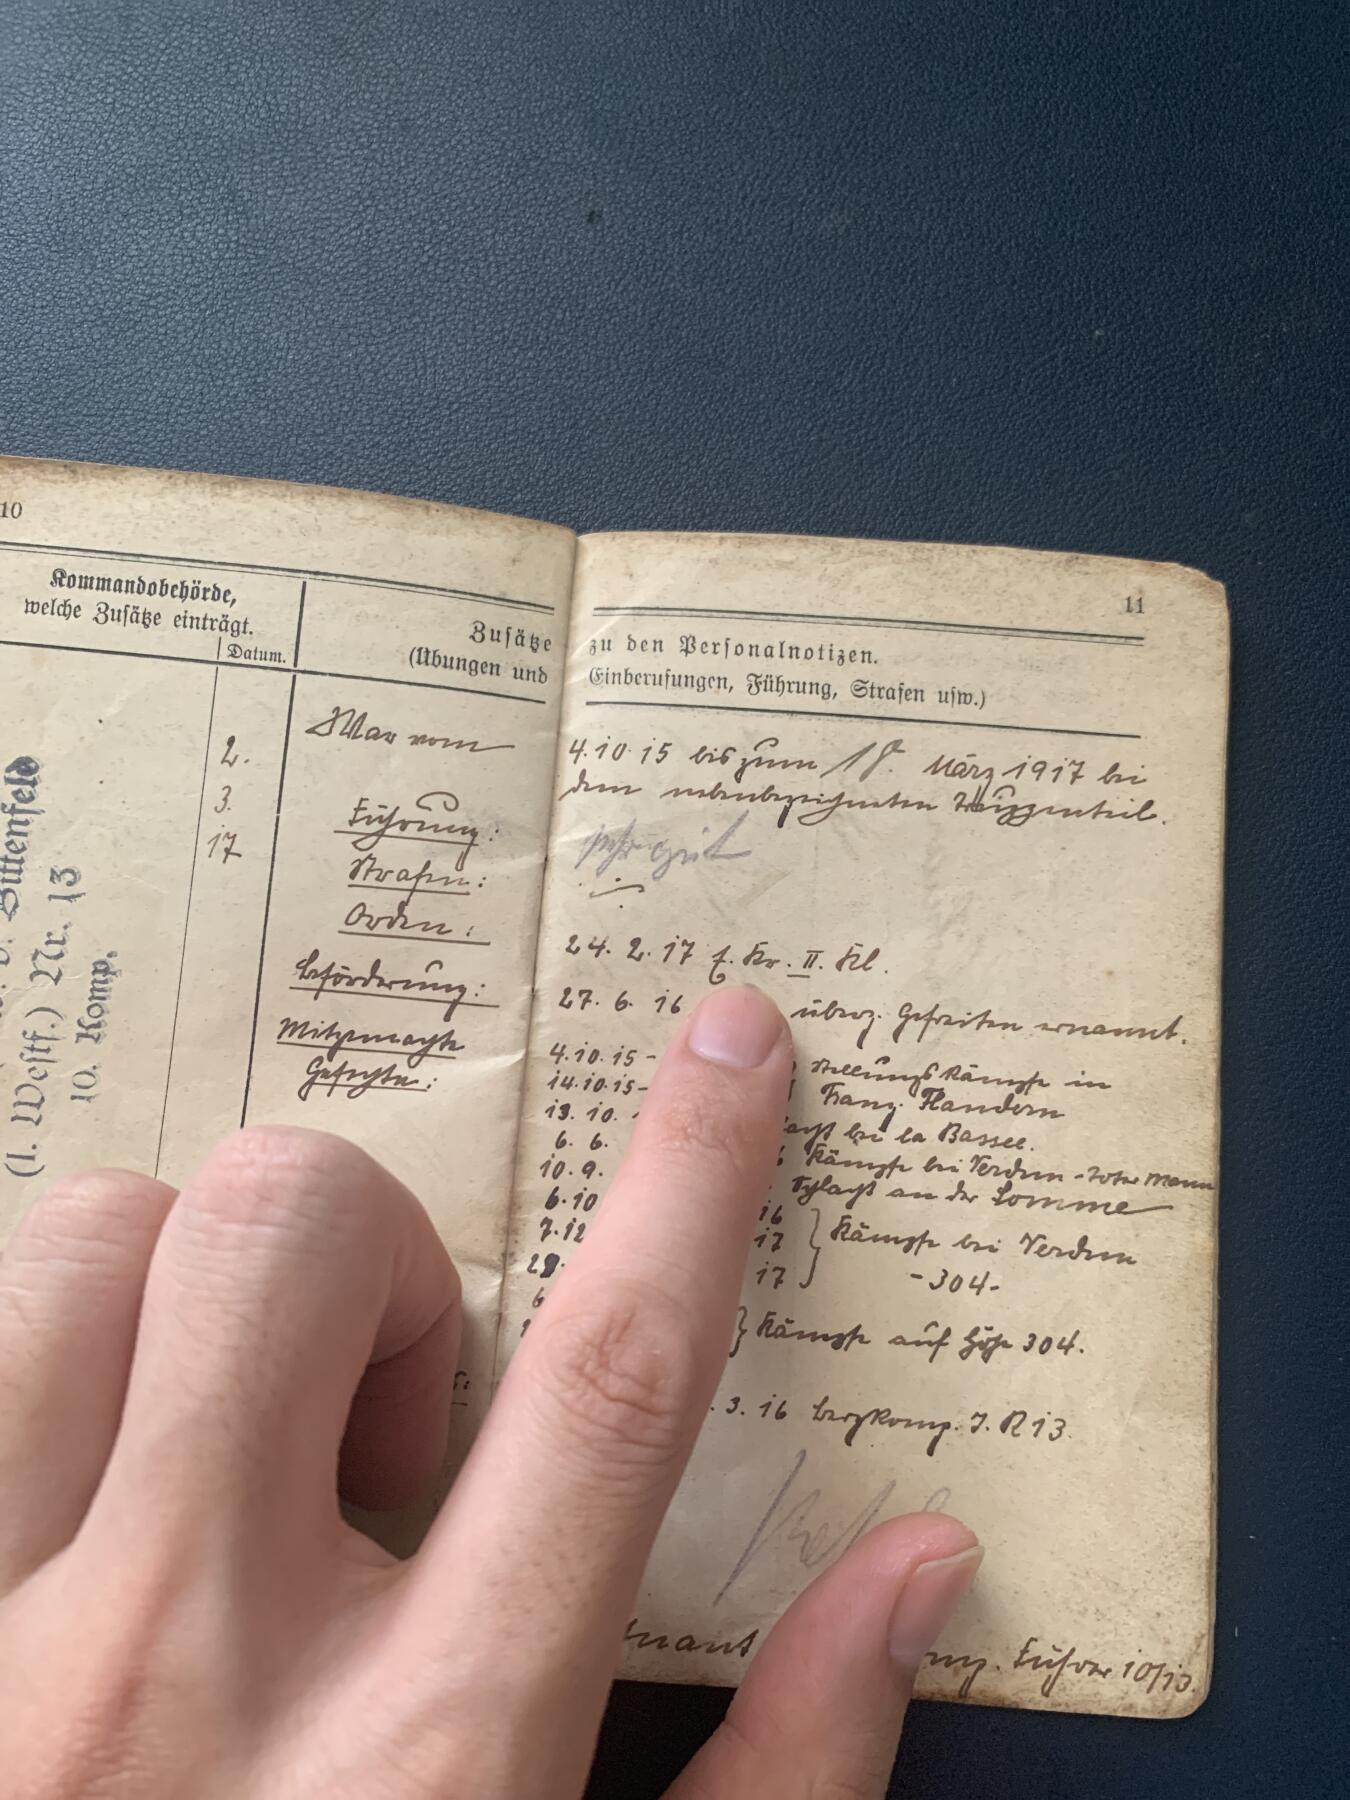 10
Kommandobehörde,
welche Zusätze einträgt.
Datum.
Zusätze
(Übungen und
Bittenfeld
(1. Westf.) Nr. 13
10. Komp.
2.
3.
17
War vom
Führung:
Strafen:
Orden:
Beförderung:
Mitgemachte
Gefechte:
11
zu den Personalnotizen.
Einberufungen, Führung, Strafen usw.)
4.10.15 bis zum 18. März 1917 bei
dem nebenbezeichneten Truppenteil.
sehr gut
24. 2. 17 E. Kr. II. Kl.
27. 6. 16 überz. Gefreiten ernannt.
4.10.15 - Stellungskämpfe in
14.10.15 - Franz. Flandern
13. 10. bei la Bassee.
6. 6. Kämpfe bei Verdun - Toter Mann
10. 9. an der Somme
6.10 16
7.12 17 Kämpfe bei Verdun
17 -304-
6
Kämpfe auf Höhe 304.
. 3. 16 J. R 13.
Führer 10/13.